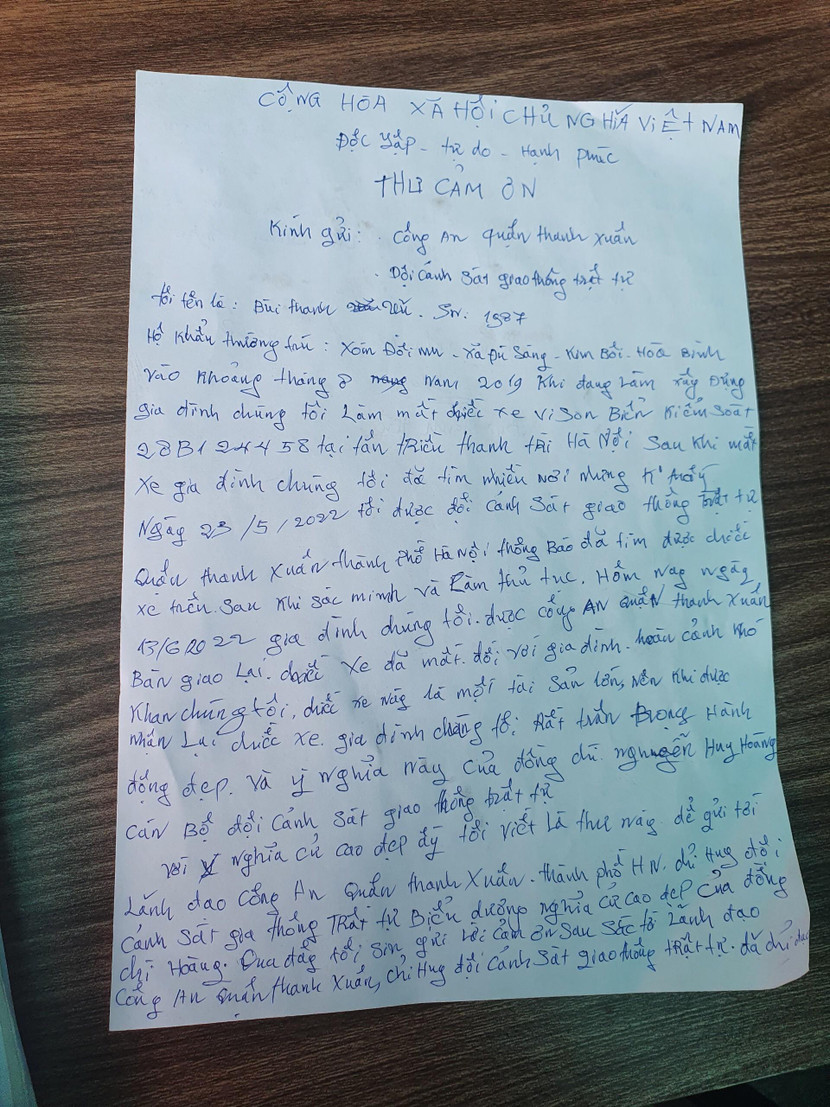 CỘNG HÒA XÃ HỘI CHỦ NGHĨA VIỆT NAM
Độc Lập - tự do - Hạnh phúc
THƯ CẢM ƠN
Kính gửi: . Công An quận thanh xuân
. Đội cảnh sát giao thông trật tự
tôi tên là: Bùi thanh . Sn: 1987
Hộ khẩu thường trú: xóm Đồi mu - xã Đú Sáng - Kim Bôi - Hoà Bình
vào khoảng tháng 8 năm 2019 khi đang làm xây Dựng
gia đình chúng tôi Làm mất chiếc xe vison Biển kiểm soát
28B1 24458 tại tân triều thanh trì Hà Nội sau khi mất
xe gia đình chúng tôi đã tìm nhiều nơi nhưng k' thấy
Ngày 23/5/2022 tôi được đội cảnh sát giao thông trật tự
Quận thanh xuân thành phố Hà Nội thông Báo đã tìm được chiếc
xe trên sau khi sác minh và Làm thủ tục. Hôm nay ngày
13/6 2022 gia đình chúng tôi. được công AN QUẬN thanh xuân
Bàn giao Lại. chiếc xe đã mất. đối với gia đình. hoàn cảnh khó
khan chúng tôi, chiếc xe này là một tài sản lớn, nên khi được
nhận Lại chiếc xe. gia đình chúng tôi Rất trân trọng Hành
động đẹp. và ý nghĩa này của đồng chí. nguyễn Huy Hoàng
cán Bộ đội cảnh sát giao thông trật tự
với nghĩa cử cao đẹp ấy tôi viết Lá thư này để gửi tới
Lãnh đạo công An Quận thanh xuân. thành phố HN. chỉ Huy đội
cảnh sát gia thông TRật tự Biểu dương nghĩa cử cao đẹp của đồng
chí Hoàng. Qua đây tôi sin gửi Lời cảm ơn sau sắc tới Lãnh đạo
Công An quận thanh xuân, chỉ Huy đội cảnh sát giao thông trật tự. đã chỉ đạo